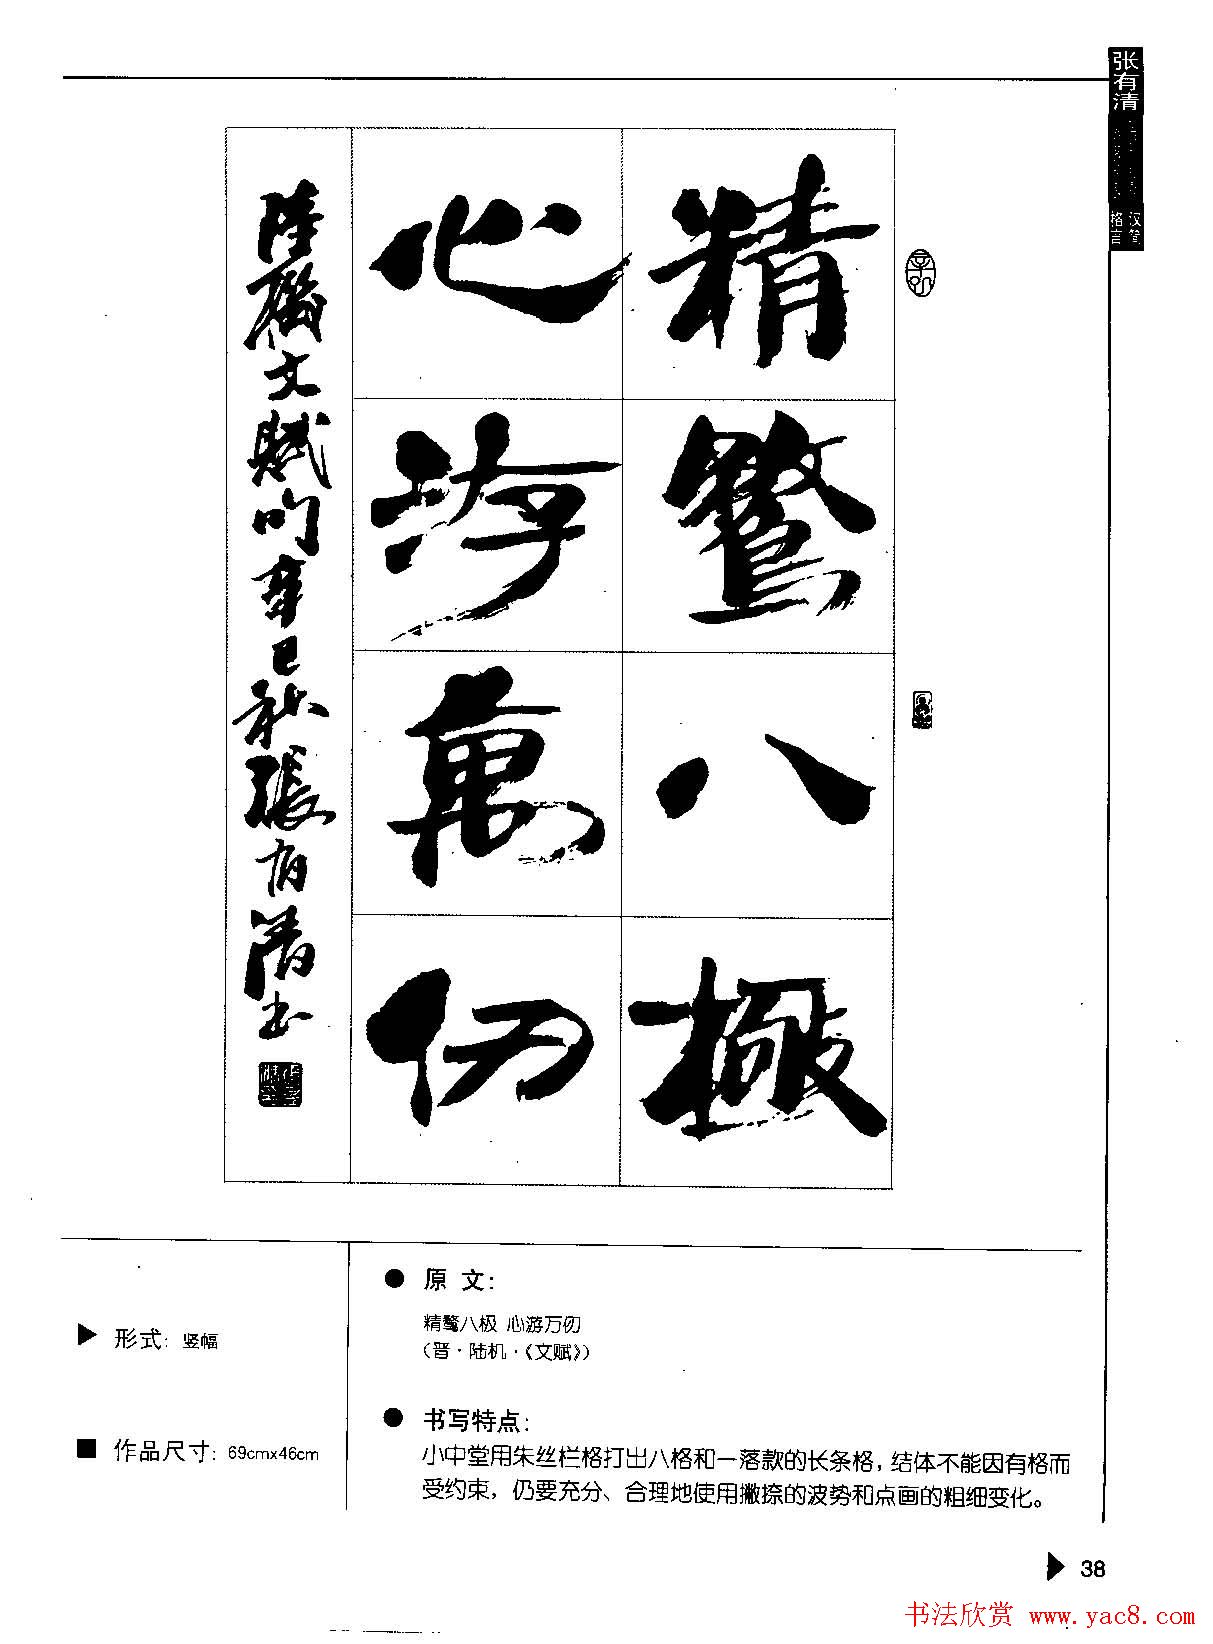 张有清
汉简
格言
精鹜八極
心游萬仞
陸機文賦句辛巳秋張有清書
形式：竖幅
作品尺寸：69cmx46cm
原 文：
精鹜八极 心游万仞
（晋·陆机·《文赋》）
书写特点：
小中堂用朱丝栏格打出八格和一落款的长条格，结体不能因有格而
受约束，仍要充分、合理地使用撇捺的波势和点画的粗细变化。
38
书法欣赏 www.yac8.com